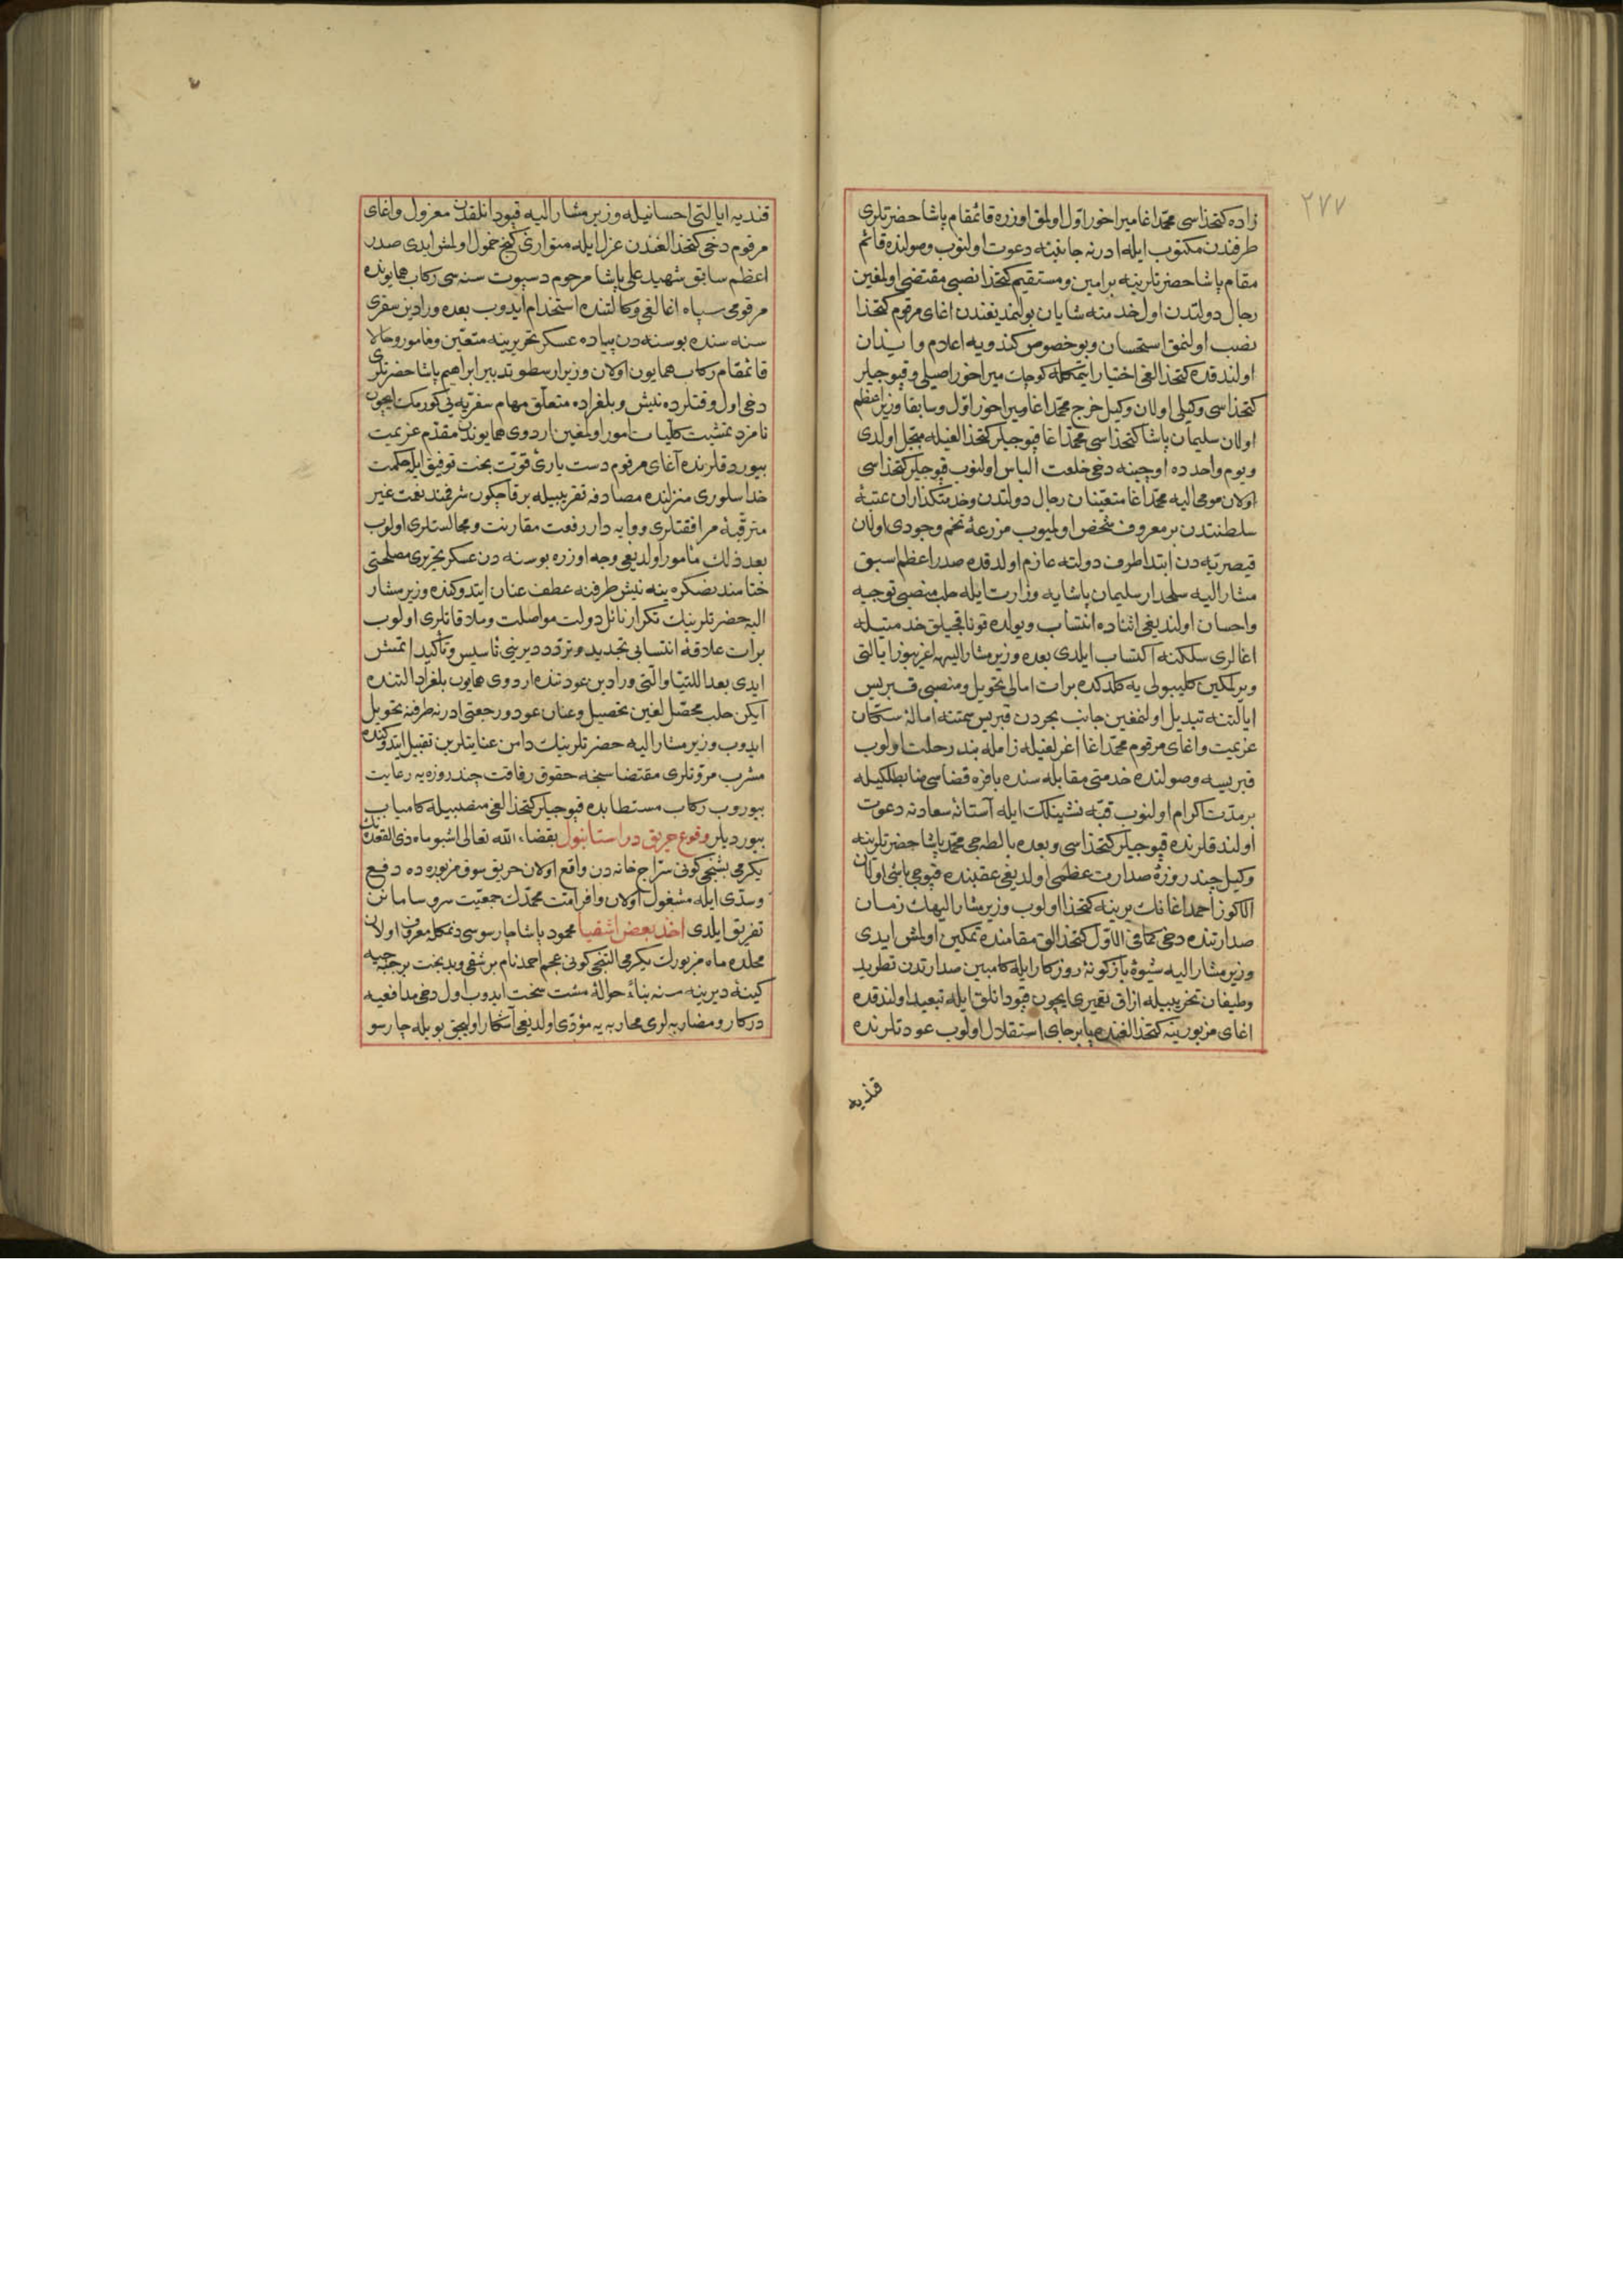 ٢٧٧
زاده كتخداسی محمد اغا میراخور اول اولمق اوزره قائمقام پاشا حضرتلری
طرفندن مكتوب ایله ادرنه جانبنه دعوت اولنوب وصولنده قائم
مقام پاشا حضرتلرینه بر امین و مستقیم كتخدا نصبی مقتضی اولمغین
رجال دولتدن اول خدمته شایان بولنمدیغندن اغای مرقوم كتخدا
نصب اولنمق استحسان و بو خصوص كندویه اعلام و ایذان
اولندقده كتخدالغی اختیار ایتمكله كوچك میراخور اصیلی و قپوجیلر
كتخداسی وكیلی اولان وكیل خرج محمد اغا میراخور اول و سابقا وزیر اعظم
اولان سلیمان پاشا كتخداسی محمد اغا قپوجیلر كتخدالغیله مبجل اولدی
و یوم واحده اوچینه دخی خلعت الباس اولنوب قپوجیلر كتخداسی
اولان مومی الیه محمد اغا متعینان رجال دولتدن و خدمتكذاران عتبهٔ
سلطنتدن بر معروف شخص اولمیوب مزرعهٔ تخم وجودی اولان
قیصریه دن ابتدا طرف دولته عازم اولدقده صدر اعظم اسبق
مشار الیه سلحدار سلیمان پاشایه وزارت ایله حلب منصبی توجیه
و احسان اولندیغی اثناده انتساب و یولده قوناقجیلق خدمتیله
اغالری سلكنه اكتساب ایلدی بعده وزیر مشار الیهه اغریبوز ایالتی
ویرلمكین كلیبولی یه كلدكده برات امالی تحویل و منصبی قبریس
ایالتنه تبدیل اولنمغین جانب بحردن قبریس سمتنه امالهٔ سكان
عزیمت و اغای مرقوم محمد اغا اغرلغیله زامله بند رحلت اولوب
قبریسه وصولنده خدمتی مقابله سنده بافره قضاسی ضابطلكیله
بر مدت اكرام اولنوب قبه نشینلكت ایله آستانهٔ سعادته دعوت
اولندقلرنده قپوجیلر كتخداسی و بعده بالطه جی محمد پاشا حضرتلرینه
وكیل چند روزهٔ صدارت عظمی اولدیغی عقبنده قپوجی باشی اولان
الاكوز احمد اغانك یرینه كتخدا اولوب وزیر مشار الیهك زمان
صدارتنده دخی كما فی الاول كتخدالق مقامنده تمكین اولمش ایدی
وزیر مشار الیه شیوهٔ بازكونهٔ روزكار ایله كامبین صدارتدن تطرید
و طیفان تخریبیله ازاق تعمیری ایچون قپودانلق ایله تبعید اولندقده
اغای مزبور ینه كتخدالغنده پابرجای استقلال اولوب عودتلرنده
قندیه
قندیه ایالتی احسانیله وزیر مشار الیه قپودانلقدن معزول و اغای
مرقوم دخی كتخدالغندن عزل ایله متواری كنج خمول اولمش ایدی صدر
اعظم سابق شهید علی پاشا مرحوم دسپوت سنه سی ركاب همایونده
مرقومی سپاه اغالغی وكالتنده استخدام ایدوب بعده ورادین سفری
سنه سنده بوسنه دن پیاده عسكر تحریرینه متعین و مأمور و حالا
قائمقام ركاب همایون اولان وزیر ارسطو تدبیر ابراهیم پاشا حضرتلری
دخی اول وقتلرده نیش و بلغراده متعلق مهام سفریه یی كورمك ایچون
نامزد تمشیت كلیات امور اولمغین اردوی همایوندن مقدم عزیمت
بیوردقلرنده آغای مرقوم دست یاریٔ قوت بخت توفیق ایله حكمت
خدا سلوری منزلنده مصادفه تقریبیله بر قاچ كون شرفند نعت غیر
مترقبهٔ مرافقتلری و وایه دار رفعت مقارنت و مجالستلری اولوب
بعد ذلك مأمور اولدیغی وجه اوزره بوسنه دن عسكر تحریری مصلحتی
ختامندنصكره ینه نیش طرفنه عطف عنان ایتدوكنده وزیر مشار
الیه حضرتلرینك تكرار نائل دولت مواصلت و ملاقاتلری اولوب
برات علاقهٔ انتسابی تجدید و تردد دیرینی تأسیس و تأكید ایتمش
ایدی بعد اللتیا والتی ورادین عودتنده اردوی همایون بلغراد التنده
ایكن حلب محصللغین تحصیل و عنان عود و رجعتی ادرنه طرفنه تحویل
ایدوب وزیر مشار الیه حضرتلرینك دامن عنایتلرین تقبیل ایتدوكنده
مشرب مروتلری مقتضاسنجه حقوق رفاقت چند روزه یه رعایت
بیوروب ركاب مستطابده قپوجیلر كتخدالغی منصبیله كامیاب
بیوردیلر وقوع حریق در استانبول بقضاء الله تعالی اشبو ماه ذی القعده نك
یكرمی بشنجی كونی سراج خانه دن واقع اولان حریق سوق مزبوره ده دفع
و سدی ایله مشغول اولان وافر امت محمدك جمعیت سر و سامانن
تفریق ایلدی اخذ بعض اشقیا محمود پاشا چارسوسی دنمكله معروف اولان
محلده ماه مزبورك یكرمی التنجی كونی عجم احمد نام بر شقی و بدبخت بر جبه جیه
كینهٔ دیرینه سنه بناءً حوالهٔ مشت سخت ایدوب اول دخی مدافعیه
دركار و مضاربه لری محاربه یه مؤدی اولدیغی آشكار اولیجق بویله چارسو